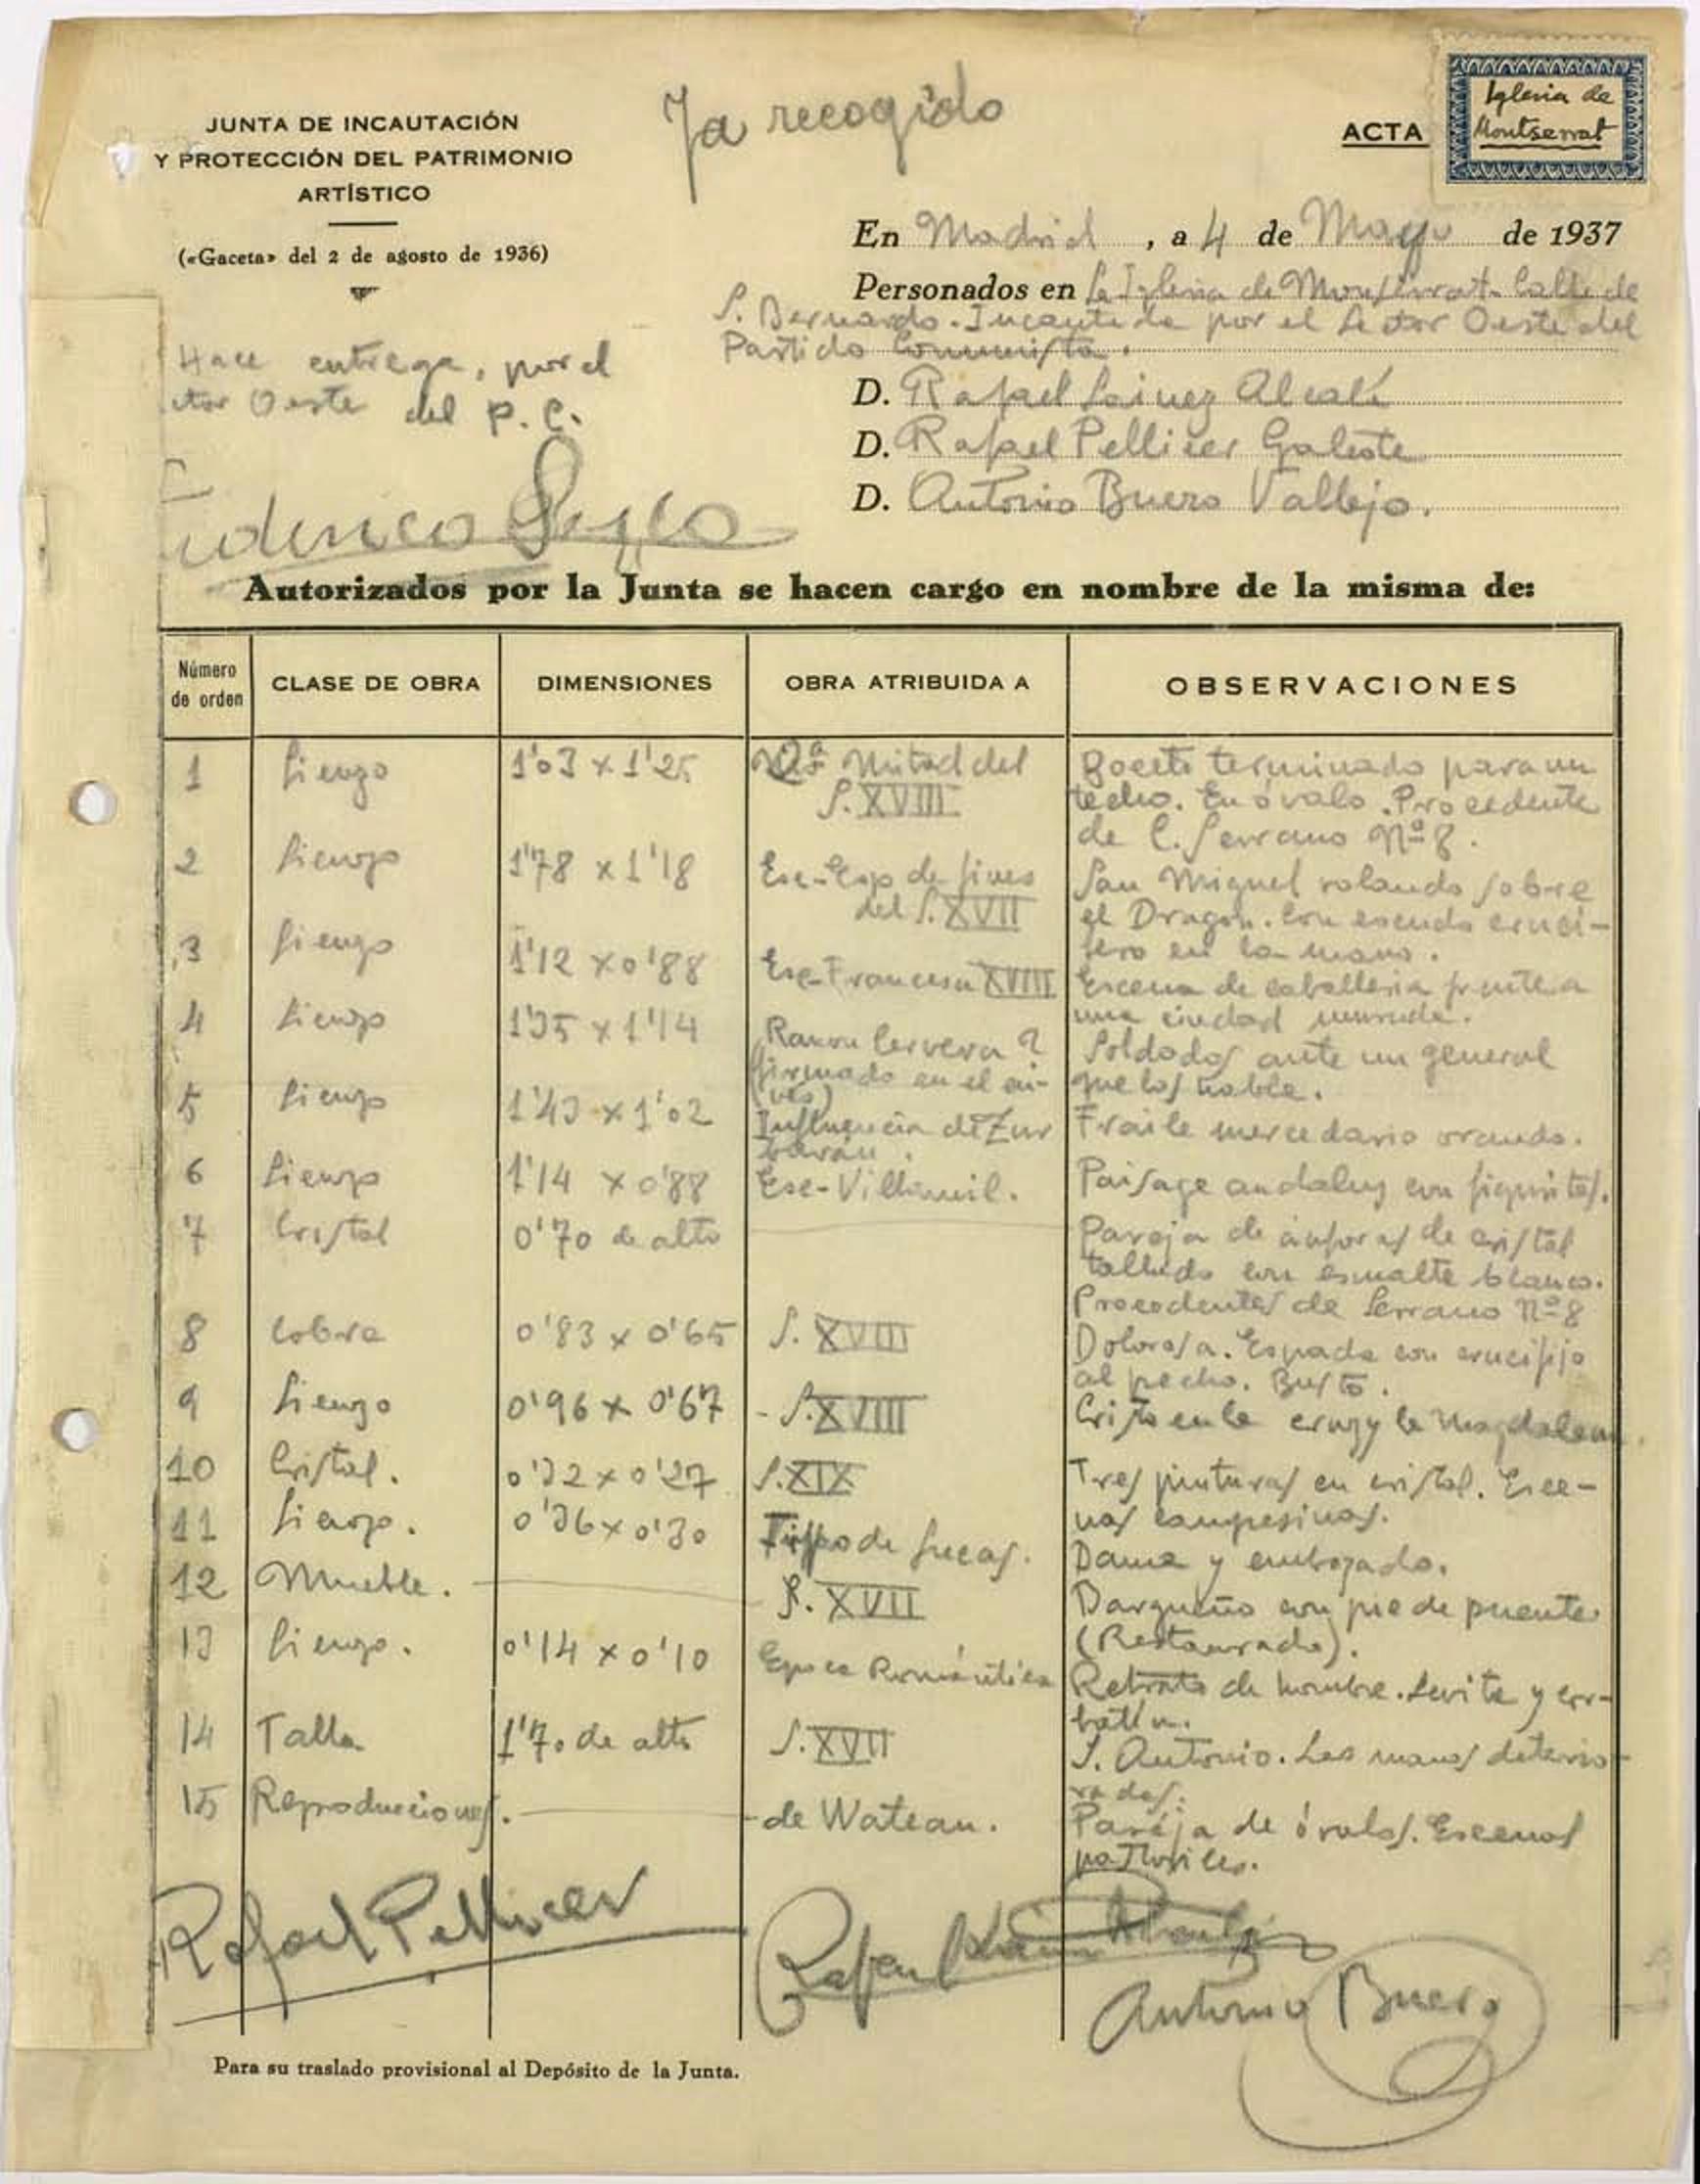 JUNTA DE INCAUTACIÓN
Y PROTECCIÓN DEL PATRIMONIO
ARTÍSTICO
(«Gaceta» del 2 de agosto de 1936)
Ya recogido
ACTA
Iglesia de
Montserrat
En Madrid, a 4 de Mayo de 1937
Personados en la Iglesia de Monserrat. Calle de
S. Bernardo. Incautada por el Sector Oeste del
Partido Comunista.
Hace entrega, por el
ctor Oeste del P.C.
D. Rafael Lainez Alcalá
D. Rafael Pellicer Galeote
D. Antonio Buero Vallejo.
Autorizados por la Junta se hacen cargo en nombre de la misma de:
Número de orden CLASE DE OBRA DIMENSIONES OBRA ATRIBUIDA A OBSERVACIONES
1 Lienzo 1'03 x 1'25 2ª Mitad del S. XVIII Boceto terminado para un
techo. En óvalo. Procedente
de C. Serrano Nº 8.
2 Lienzo 1'78 x 1'18 Esc-Esp de fines del S. XVII San Miguel volando sobre
el Dragon. Con escudo crucí-
fero en la mano.
3 Lienzo 1'12 x 0'88 Esc-Francesa XVIII Escena de caballeria frente a
una ciudad
4 Lienzo 1'35 x 1'14 Ramon Cervera? (firmado en el en-
vés) Soldados ante un general
que los habla.
5 Lienzo 1'43 x 1'02 Influencia de Zur
baran. Fraile mercedario orando.
6 Lienzo 1'14 x 0'88 Esc-Villamil. Paisage andaluz con figuritas.
7 Cristal 0'70 de alto Pareja de ánforas de cristal
tallado con esmalte blanco.
Procedentes de Serrano Nº 8
8 Cobre 0'83 x 0'65 S. XVIII Dolorosa. Espada con crucifijo
al pecho. Busto.
9 Lienzo 0'96 x 0'67 - S. XVIII Cristo en la cruz y la Magdalena.
10 Cristal. 0'32 x 0'27 S. XIX Tres pinturas en cristal. Esce-
nas campesinas.
11 Lienzo. 0'36 x 0'30 Tipo de Lucas. Dama y embozado.
12 Mueble. S. XVII Bargueño con pie de puente
(Restaurado).
13 Lienzo. 0'14 x 0'10 Epoca Romántica Retrato de hombre. Levita y cor-
batin.
14 Talla 1'70 de alto S. XVII S. Antonio. Las manos deterio-
radas.
15 Reproducciones. - de Wateau. Pareja de óvalos. Escenas
pastoriles.
Rafael Pellicer
Rafael Lainez Alcalá
Antonio Buero
Para su traslado provisional al Depósito de la Junta.